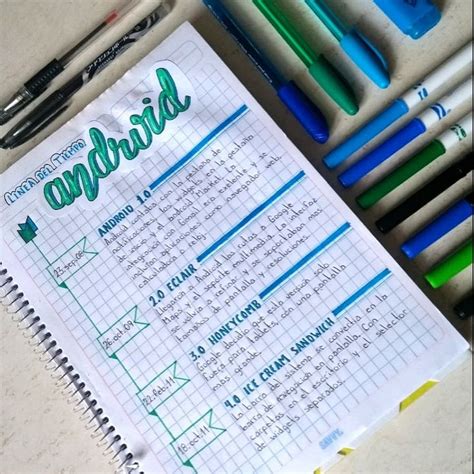 LINEA DEL TIEMPO
android
23·sep·08
ANDROID 1.0
Android contaba con la pestaña de
notificaciones, los widgets en la pantalla
de inicio y el android Market. La
integración con Gmail era excelente y se
incluían aplicaciones como navegador web,
calculadora y reloj.
26·oct·09
2.0 ECLAIR
Llegaron a Android las rutas a Google
Maps y el soporte multimedia. La interfaz
se volvía a refinar y se soportaban más
tamaños de pantalla y resoluciones.
22·Feb·11
3.0 HONEYCOMB
Google decidió que esta versión solo
fuera para tablets, con una pantalla
más grande.
18·oct·11
4.0 ICE CREAM SANDWICH
La barra del sistema se convertía en la
barra de navegación en pantalla. Con
carpetas en el escritorio y el selector
de widgets separados.